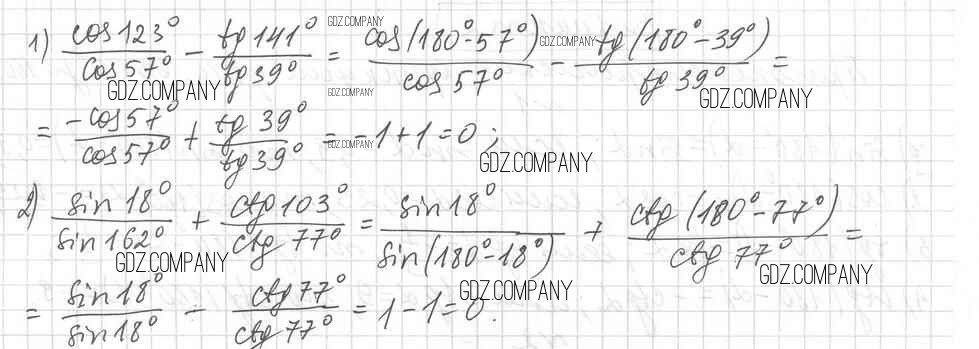 1) cos 123° / cos 57° − tg 141° / tg 39° = cos(180°−57°) / cos 57° − tg(180°−39°) / tg 39° =
= −cos 57° / cos 57° + tg 39° / tg 39° = −1+1=0;
2) sin 18° / sin 162° + ctg 103° / ctg 77° = sin 18° / sin(180°−18°) + ctg(180°−77°) / ctg 77° =
= sin 18° / sin 18° − ctg 77° / ctg 77° = 1−1=0.
GDZ.COMPANY
GDZ.COMPANY
GDZ.COMPANY
GDZ.COMPANY
GDZ.COMPANY
GDZ.COMPANY
GDZ.COMPANY
GDZ.COMPANY
GDZ.COMPANY
GDZ.COMPANY